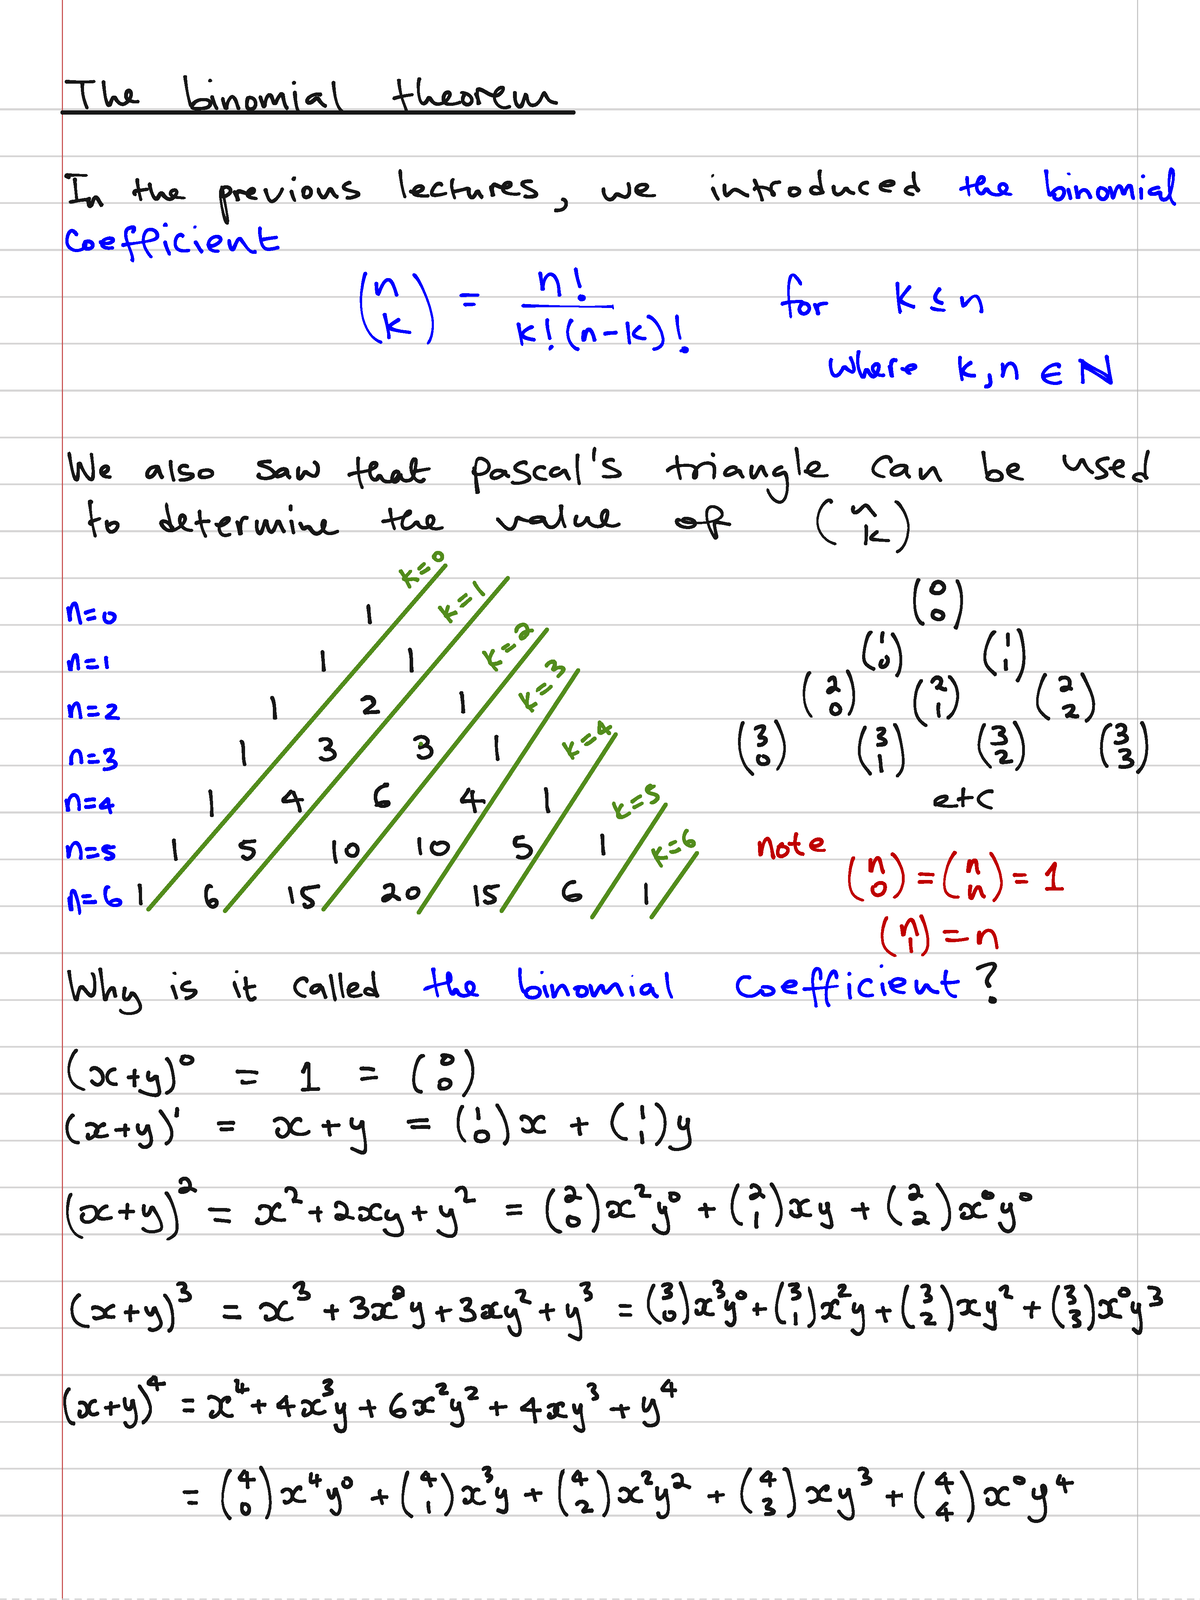 The binomial theorem
In the previous lectures, we introduced the binomial
coefficient
(n k) = n! / k!(n-k)! for k ≤ n
where k,n ∈ ℕ
We also saw that pascal's triangle can be used
to determine the value of (n k)
k=0 k=1 k=2 k=3 k=4 k=5 k=6
n=0 1
n=1 1 1
n=2 1 2 1
n=3 1 3 3 1
n=4 1 4 6 4 1
n=5 1 5 10 10 5 1
n=6 1 6 15 20 15 6 1
(0 0)
(1 0) (1 1)
(2 0) (2 1) (2 2)
(3 0) (3 1) (3 2) (3 3)
etc
note
(n 0) = (n n) = 1
(n 1) = n
Why is it called the binomial coefficient?
(x+y)⁰ = 1 = (0 0)
(x+y)¹ = x+y = (1 0)x + (1 1)y
(x+y)² = x²+2xy+y² = (2 0)x²y⁰ + (2 1)xy + (2 2)x⁰y⁰
(x+y)³ = x³+3x²y+3xy²+y³ = (3 0)x³y⁰+(3 1)x²y+(3 2)xy²+(3 3)x⁰y³
(x+y)⁴ = x⁴+4x³y+6x²y²+4xy³+y⁴
= (4 0)x⁴y⁰ + (4 1)x³y + (4 2)x²y² + (4 3)xy³ + (4 4)x⁰y⁴